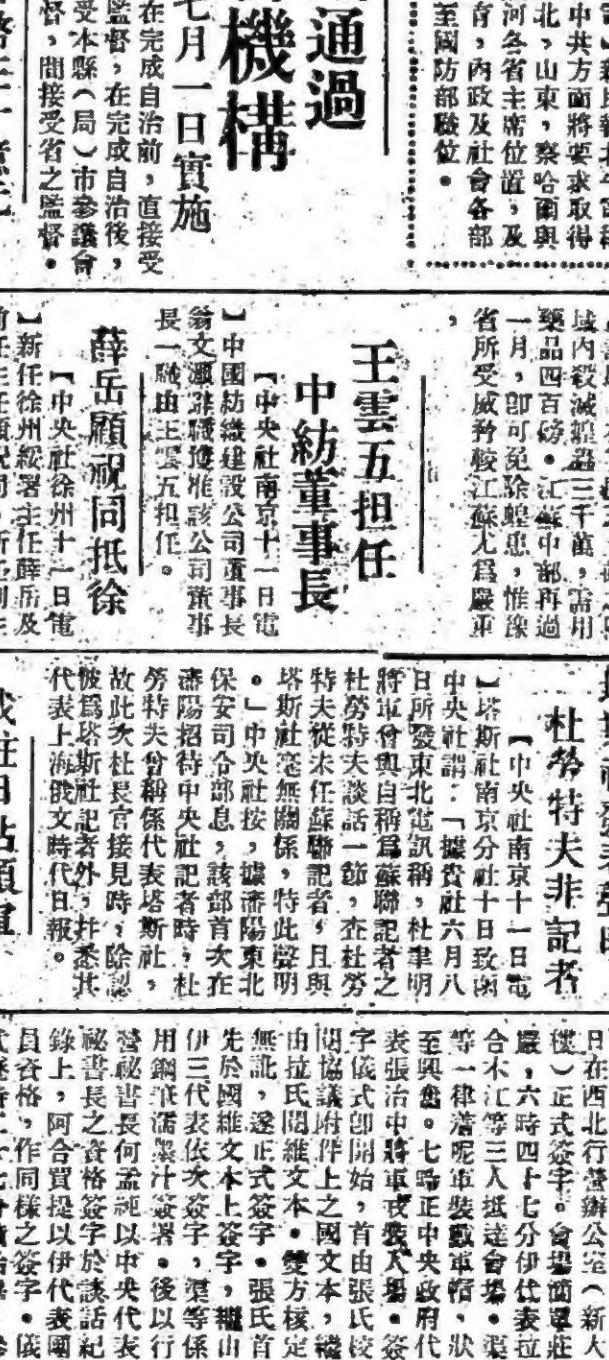 中共方面將要求取得
北，山東，察哈爾與
河各省主席位置，及
育，內政及社會各部
至國防部職位。
通過
機構
七月一日實施
在完成自治前，直接受
監督，在完成自治後，
受本縣（局）市參議會
督，間接受省之監督。
域內殺滅蝗蟲三千萬，需用
藥品四百磅。江蘇中部再過
一月，卽可免除蝗患，惟豫
省所受威脅較江蘇尤爲嚴重
王雲五担任
中紡董事長
【中央社南京十一日電
】中國紡織建設公司董事長
翁文灝辭職獲准該公司董事
長一職由王雲五担任。
薛岳顧祝同抵徐
【中央社徐州十一日電
】新任徐州綏署主任薛岳及
杜勞特夫非記者
【中央社南京十一日電
】塔斯社南京分社十日致函
中央社謂：「據貴社六月八
日所發東北電訊稱，杜聿明
將軍曾與自稱爲蘇聯記者之
杜勞特夫談話一節，查杜勞
特夫從未任蘇聯記者，且與
塔斯社毫無關係，特此聲明
。」中央社按，據瀋陽東北
保安司令部息，該部首次在
瀋陽招待中央社記者時，杜
勞特夫曾稱係代表塔斯社，
故此次杜長官接見時，除認
彼爲塔斯社記者外，幷悉其
代表上海俄文時代日報。
日在西北行營辦公室（新大
樓）正式簽字。會場簡單莊
嚴，六時四十七分伊代表拉
合木江等三人抵達會場。渠
等一律着呢軍裝戴軍帽，狀
至興奮。七時正中央政府代
表張治中將軍戎裝入場。簽
字儀式卽開始，首由張氏校
閱協議附件上之國文本，繼
由拉氏閱維文本。雙方核定
無訛，遂正式簽字。張氏首
先於國維文本上簽字，繼由
伊三代表依次簽字，渠等係
用鋼筆濡墨汁簽署。後以行
營祕書長何孟純以中央代表
祕書長之資格簽字於談話紀
錄上，阿合買提以伊代表團
員資格，作同樣之簽字。儀